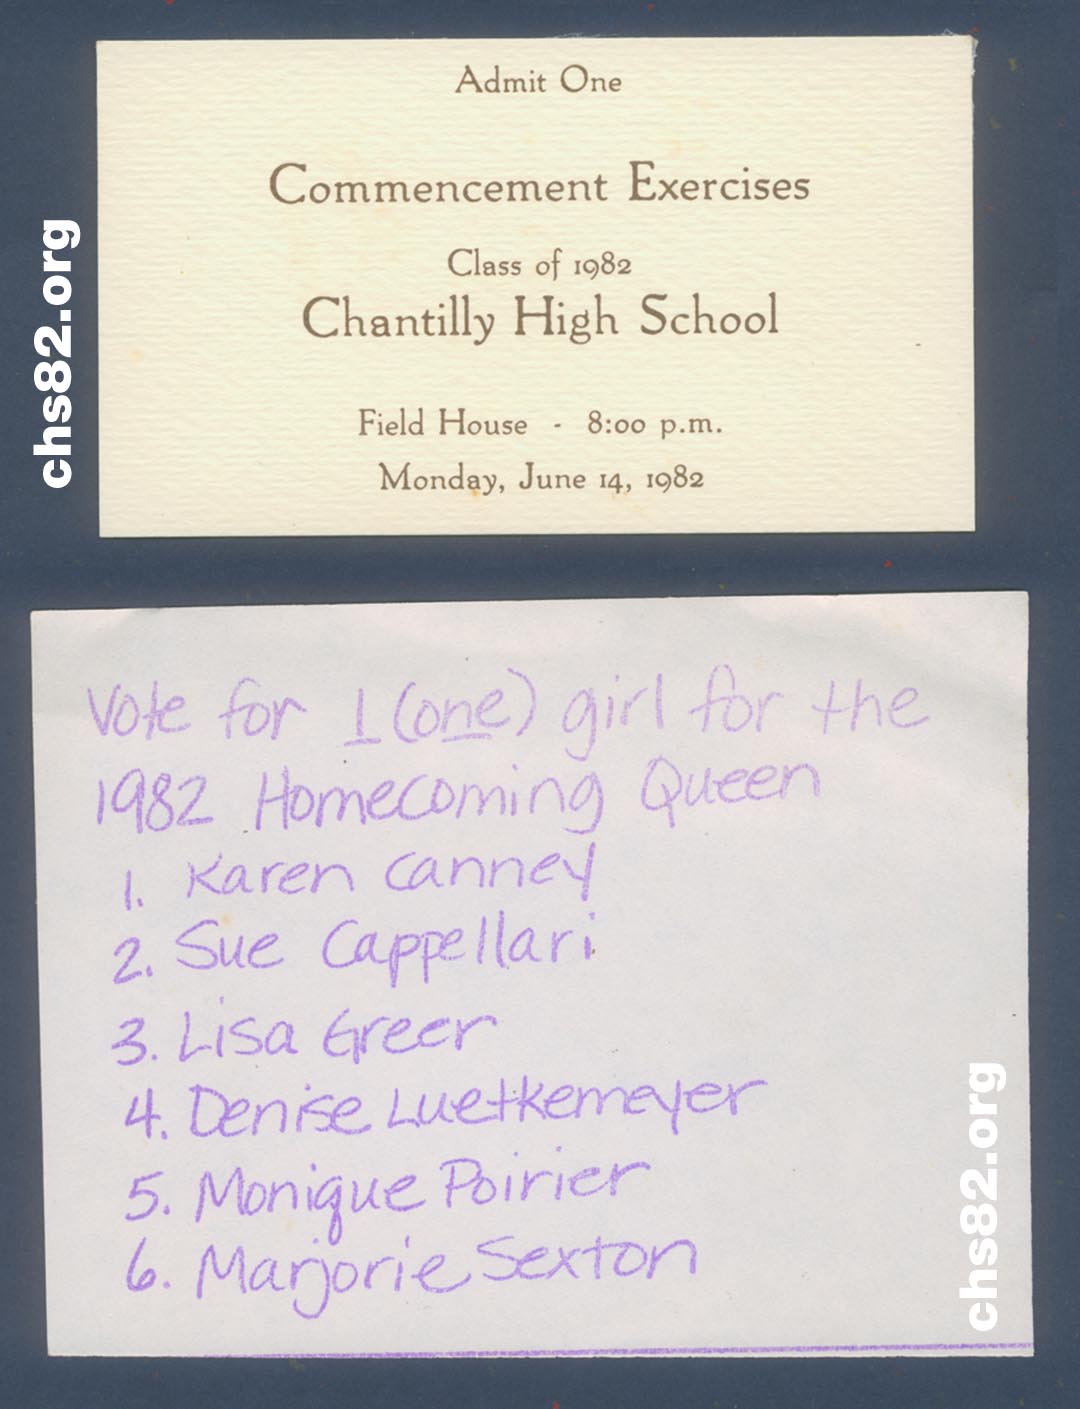 Admit One
Commencement Exercises
Class of 1982
Chantilly High School
Field House - 8:00 p.m.
Monday, June 14, 1982
chs82.org
Vote for 1 (one) girl for the
1982 Homecoming Queen
1. Karen Canney
2. Sue Cappellari
3. Lisa Greer
4. Denise Luetkemeyer
5. Monique Poirier
6. Marjorie Sexton
chs82.org